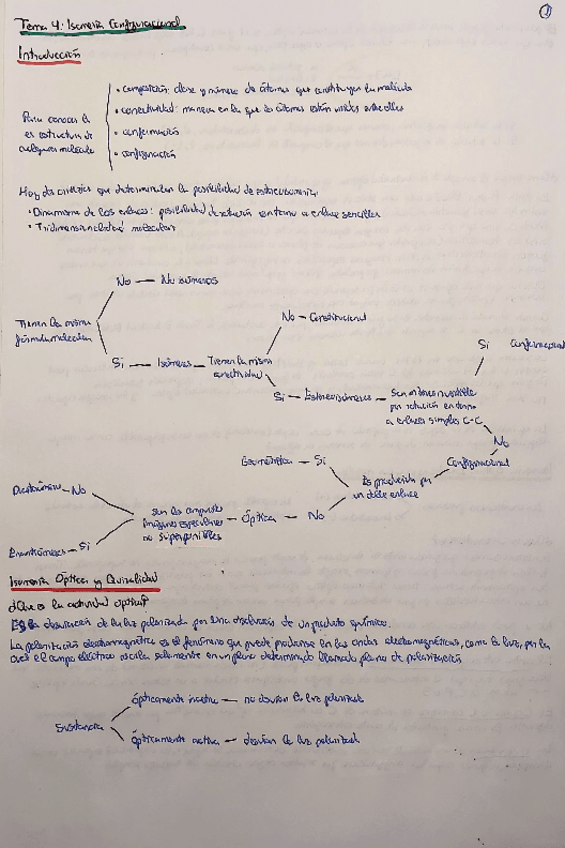 1
Tema 4: Isomería Configuracional
Introducción
Para conocer la
estructura de
cualquier molécula
• composición: clase y número de átomos que constituyen la molécula
• conectividad: manera en la que los átomos están unidos entre ellos
• conformación
• configuración
Hay dos criterios que determinan la posibilidad de estereoisomería:
• Dinamismo de los enlaces: posibilidad de rotación entorno a enlaces sencillos
• Tridimensionalidad molecular
No — No isómeros
Tienen la misma
fórmula molecular
No — Constitucional
Si — Isómeros — Tienen la misma
conectividad
Si Conformacional
Si — Estereoisómeros — Son interconvertible
por rotación entorno
a enlaces simples C-C
No
Configuracional
Geométrica — Si
Es producida por
un doble enlace
Diastereómeros — No
Son los compuestos
imágenes especulares
no superponibles
— Óptica — No
Enantiómeros — Si
Isomería Óptica y Quiralidad
¿Que es la actividad óptica?
Es la desviación de la luz polarizada por una disolución de un producto químico.
La polarización electromagnética es el fenómeno que puede producirse en las ondas electromagnéticas, como la luz, por la
cual el campo eléctrico oscila solamente en un plano determinado llamado plano de polarización
Ópticamente inactiva — no desvían la luz polarizada
Sustancia
Ópticamente activa — desvían la luz polarizada